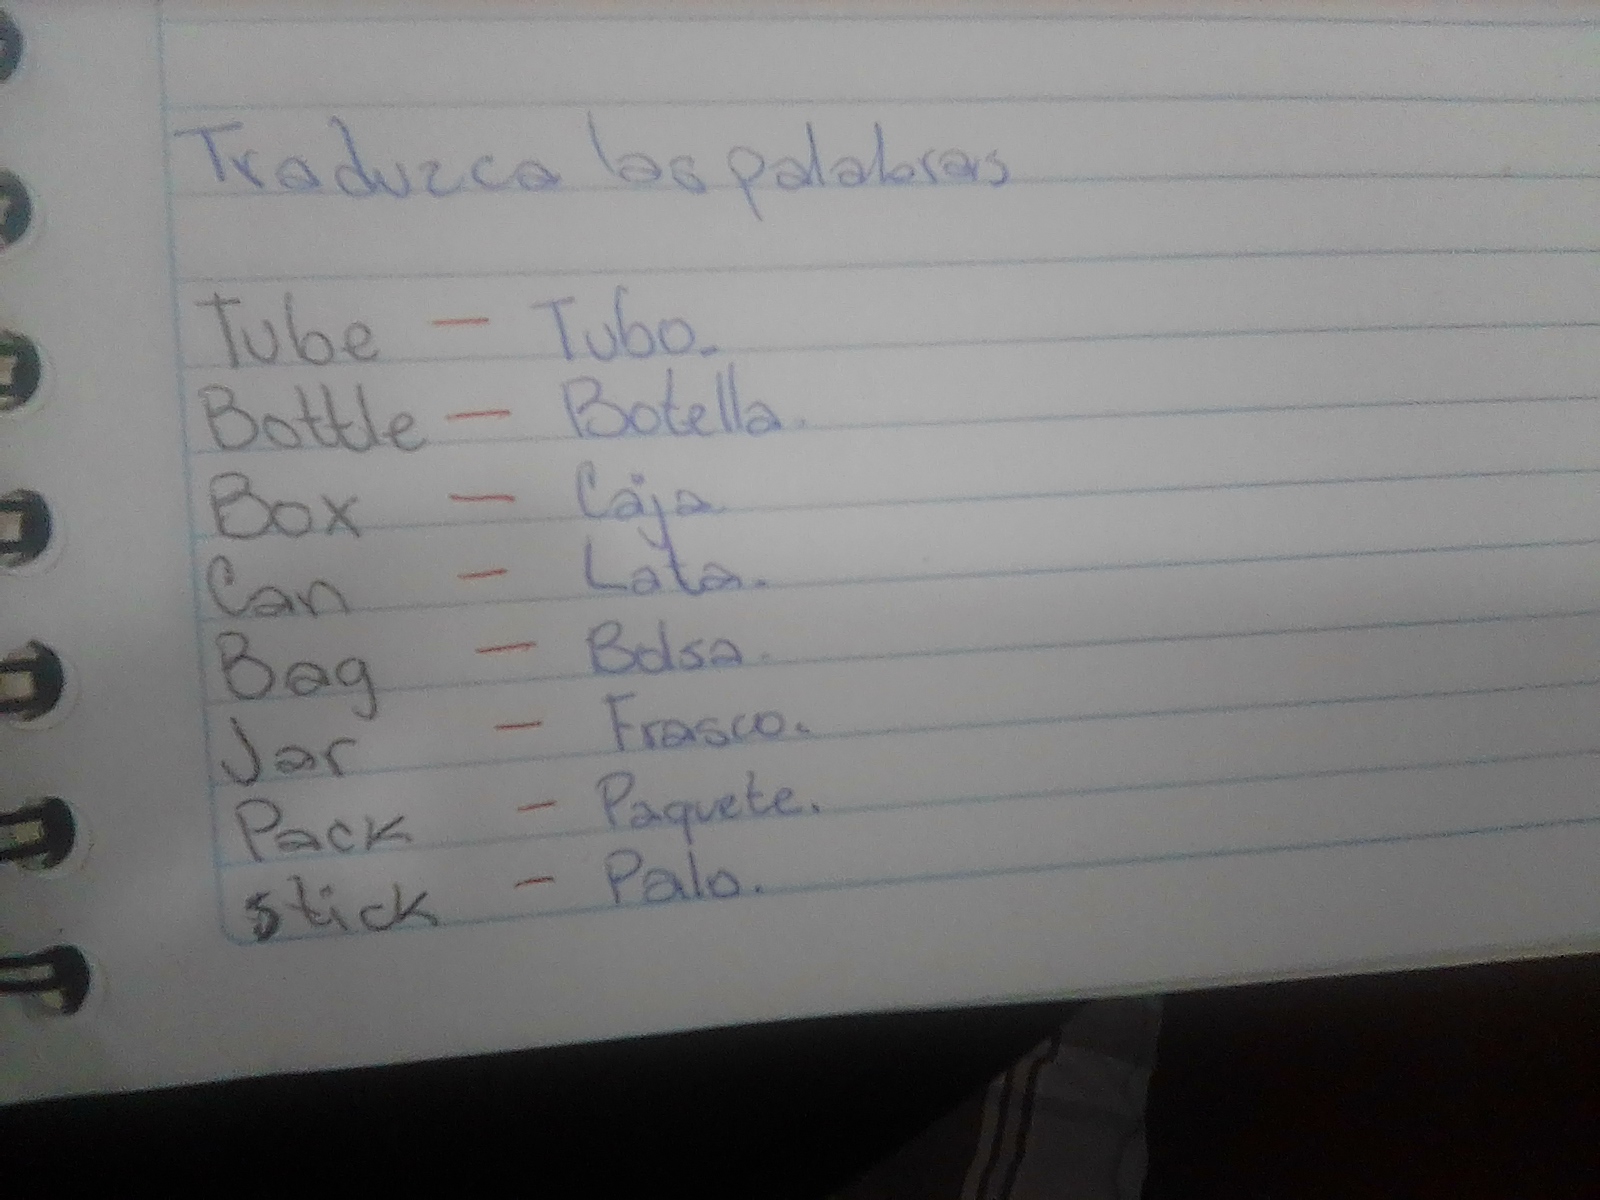 Traduzca las palabras
Tube — Tubo.
Bottle — Botella.
Box — Caja
Can — Lata.
Bag — Bolsa.
Jar — Frasco.
Pack — Paquete.
stick — Palo.